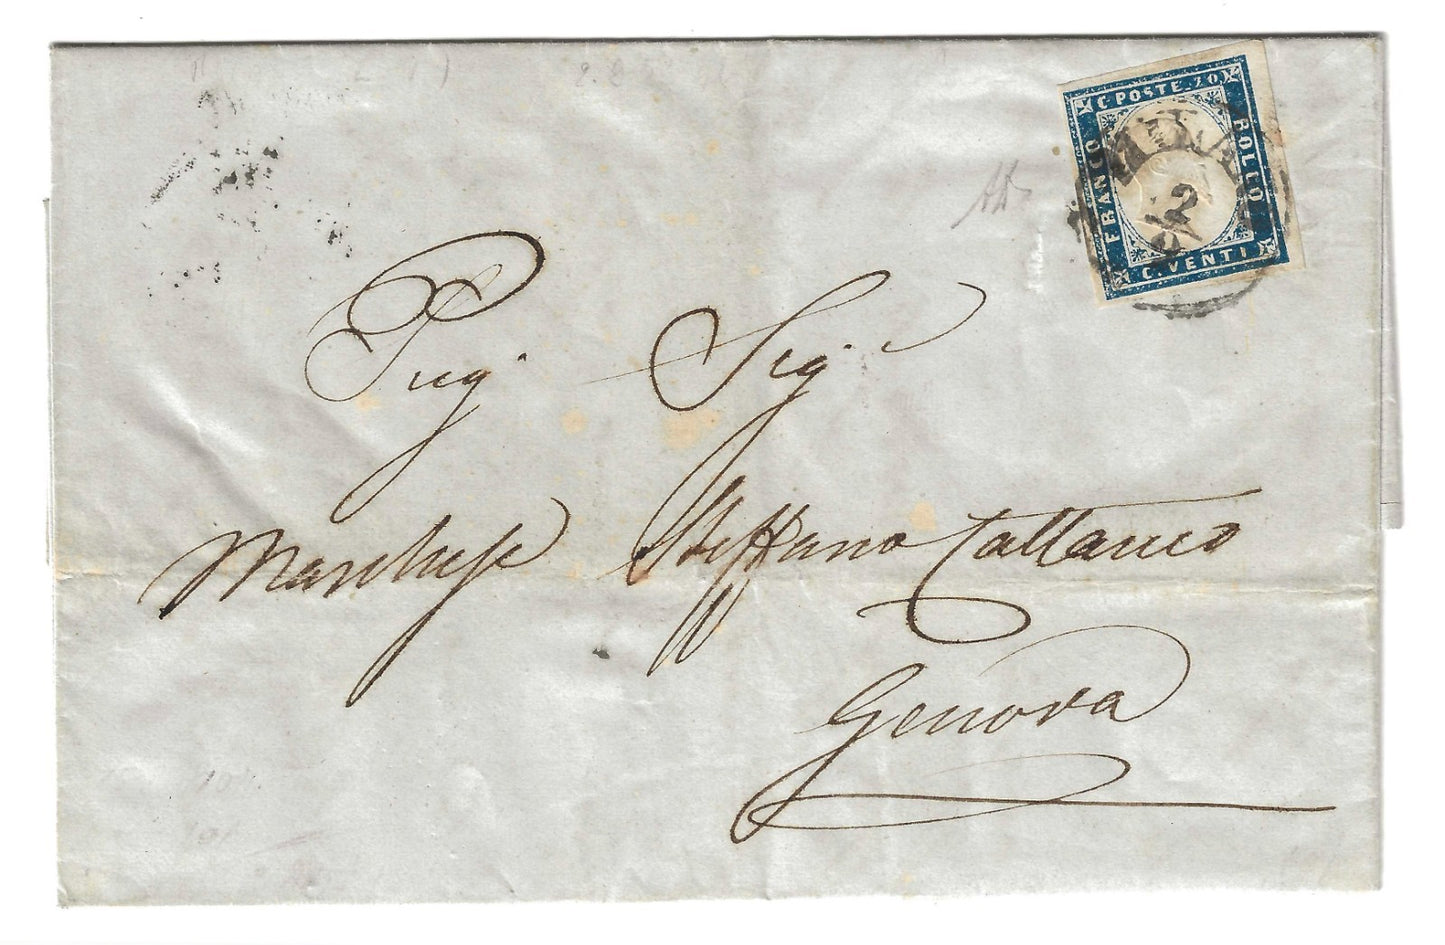 C. POSTE. 20
FRANCO
BOLLO
C. VENTI
2
Preg. Sig.
Marchese Steffano Cattaneo
Genova